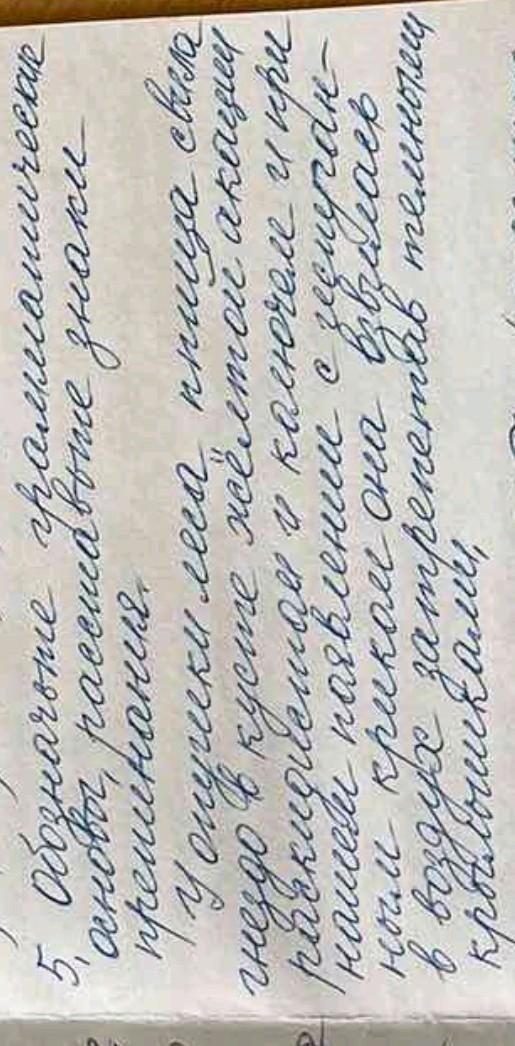 5, Обозначьте грамматические
основы, расставьте знаки
препинания.
У опушки леса птица свила
гнездо в кусте жёлтой акации
раскидистом и колючем и при
нашем появлении с испуган-
ным криком она взвилась
в воздух затрепетав темными
крылышками,